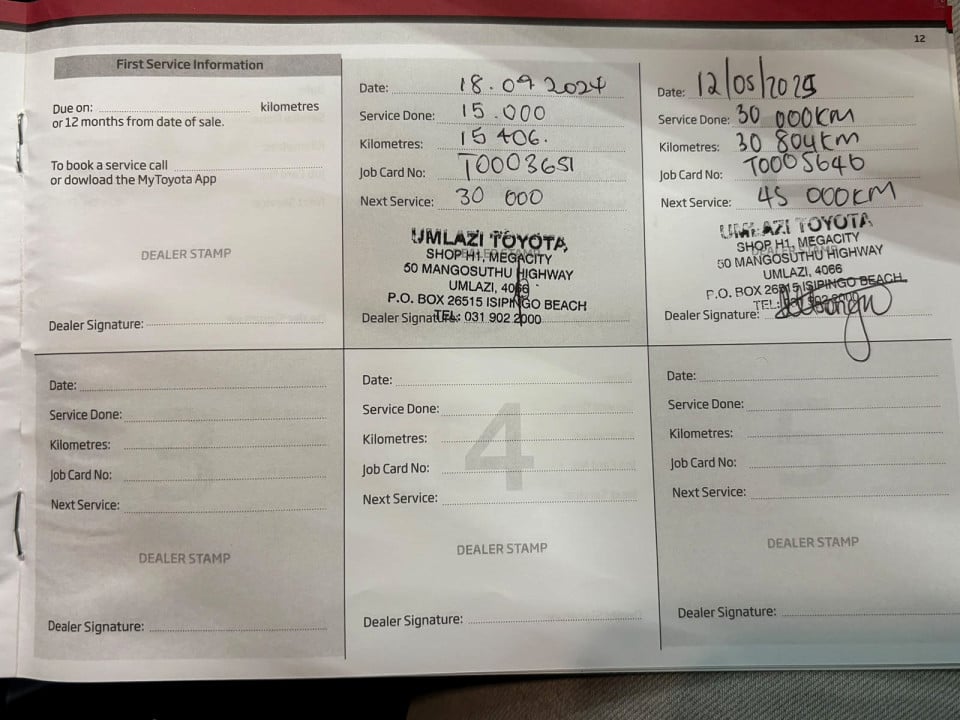 12
First Service Information
Due on: kilometres
or 12 months from date of sale.
To book a service call
or dowload the MyToyota App
DEALER STAMP
Dealer Signature:
Date: 18.09 2024
Service Done: 15.000
Kilometres: 15 406.
Job Card No: T0003651
Next Service: 30 000
UMLAZI TOYOTA
SHOP H1, MEGACITY
50 MANGOSUTHU HIGHWAY
UMLAZI, 4066
P.O. BOX 26515 ISIPINGO BEACH
TEL: 031 902 2000
Dealer Signature:
Date: 12/05/2025
Service Done: 30 000KM
Kilometres: 30 804km
Job Card No: T0005646
Next Service: 45 000KM
UMLAZI TOYOTA
SHOP H1, MEGACITY
50 MANGOSUTHU HIGHWAY
UMLAZI, 4066
P.O. BOX 26515 ISIPINGO BEACH
TEL:
Dealer Signature:
Date:
Service Done:
Kilometres:
Job Card No:
Next Service:
DEALER STAMP
Dealer Signature:
4
Date:
Service Done:
Kilometres:
Job Card No:
Next Service:
DEALER STAMP
Dealer Signature:
5
Date:
Service Done:
Kilometres:
Job Card No:
Next Service:
DEALER STAMP
Dealer Signature: